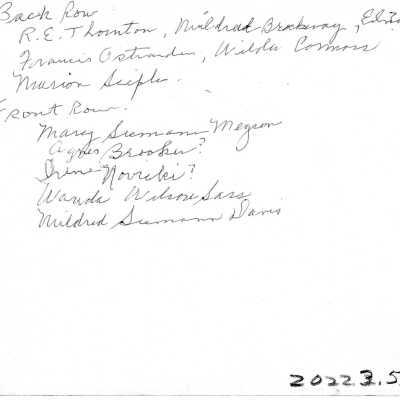 Back Row
R.E. Thornton, Mildred Brokaway,
Francis Ostrander, Wilda Connors
Marion Seipla.
Front Row.
Mary Siemann Megson
Agnes Brooker?
Irene Novicki?
Wanda Wilson Sass
Mildred Siemann Davis
2022.3.5